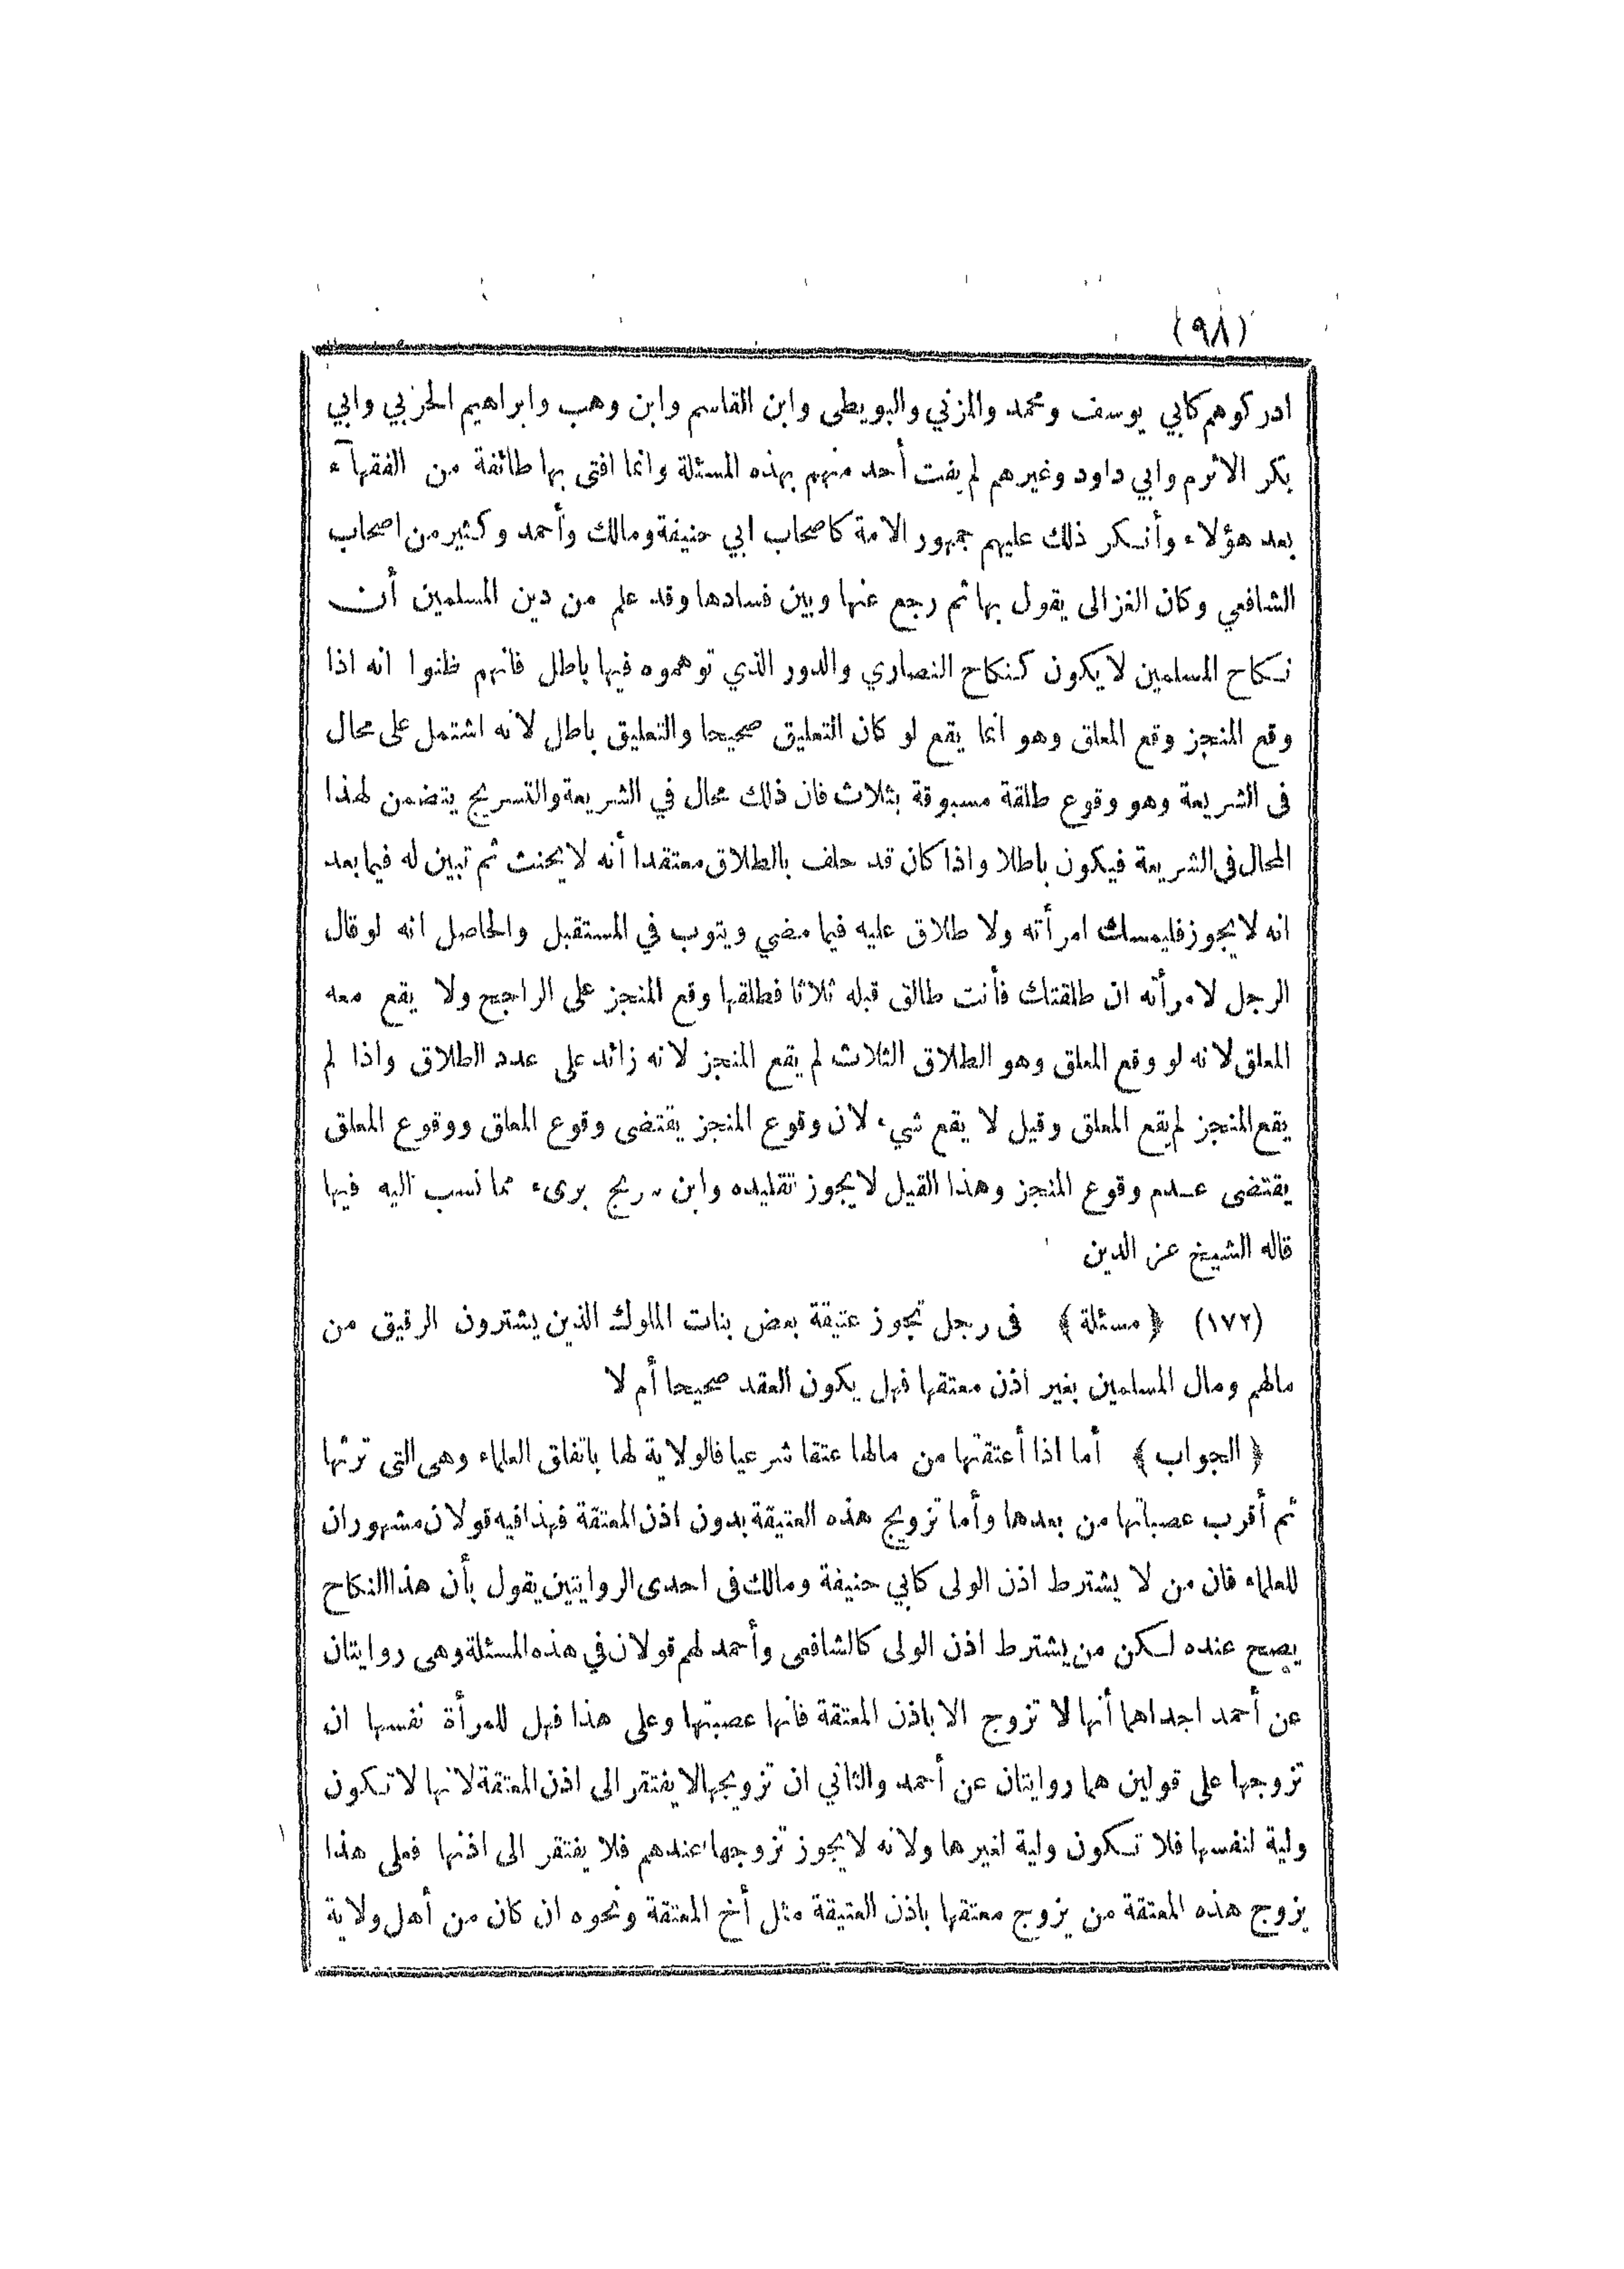 (٩٨)
ادركوهم كابي يوسف ومحمد والمزني والبويطى وابن القاسم وابن وهب وابراهيم الحربي وابي
بكر الاثرم وابي داود وغيرهم لم يفت أحد منهم بهذه المسئلة وانما افتى بها طائفة من الفقهآء
بعد هؤلاء وأنكر ذلك عليهم جمهور الامة كاصحاب ابي حنيفة ومالك وأحمد وكثير من اصحاب
الشافعي وكان الغزالى يقول بها ثم رجع عنها وبين فسادها وقد علم من دين المسلمين أن
نكاح المسلمين لا يكون كنكاح النصاري والدور الذي توهموه فيها باطل فانهم ظنوا انه اذا
وقع المنجز وقع المعلق وهو انما يقع لو كان التعليق صحيحا والتعليق باطل لانه اشتمل على محال
فى الشريعة وهو وقوع طلقة مسبوقة بثلاث فان ذلك محال في الشريعة والتسريج يتضمن لهذا
المحال فى الشريعة فيكون باطلا واذا كان قد حلف بالطلاق معتقدا أنه لا يحنث ثم تبين له فيما بعد
انه لا يجوز فليمسك امرأته ولا طلاق عليه فيما مضي ويتوب في المستقبل والحاصل انه لو قال
الرجل لامرأته ان طلقتك فأنت طالق قبله ثلاثا فطلقها وقع المنجز على الراجح ولا يقع معه
المعلق لانه لو وقع المعلق وهو الطلاق الثلاث لم يقع المنجز لانه زائد على عدد الطلاق واذا لم
يقع المنجز لم يقع المعلق وقيل لا يقع شيء لان وقوع المنجز يقتضى وقوع المعلق ووقوع المعلق
يقتضى عدم وقوع المنجز وهذا القيل لا يجوز تقليده وابن سريج برىء مما نسب اليه فيها
قاله الشيخ عز الدين
(١٧٢) ﴿مسئلة﴾ فى رجل تجوز عتيقة بعض بنات الملوك الذين يشترون الرقيق من
مالهم ومال المسلمين بغير اذن معتقها فهل يكون العقد صحيحا أم لا
﴿الجواب﴾ أما اذا أعتقتها من مالها عتقا شرعيا فالولاية لها باتفاق العلماء وهى التى ترثها
ثم أقرب عصباتها من بعدها وأما تزويج هذه العتيقة بدون اذن المعتقة فهذا فيه قولان مشهوران
للعلماء فان من لا يشترط اذن الولى كابي حنيفة ومالك فى احدى الروايتين يقول بأن هذا النكاح
يصح عنده لكن من يشترط اذن الولى كالشافعى وأحمد لهم قولان في هذه المسئلة وهى روايتان
عن أحمد احداهما أنها لا تزوج الا باذن المعتقة فانها عصبتها وعلى هذا فهل للمرأة نفسها ان
تزوجها على قولين هما روايتان عن أحمد والثاني ان تزويجها لا يفتقر الى اذن المعتقة لانها لا تكون
ولية لنفسها فلا تكون ولية لغيرها ولانه لا يجوز تزوجها عندهم فلا يفتقر الى اذنها فعلى هذا
يزوج هذه المعتقة من يزوج معتقها باذن العتيقة مثل أخ المعتقة ونحوه ان كان من أهل ولاية